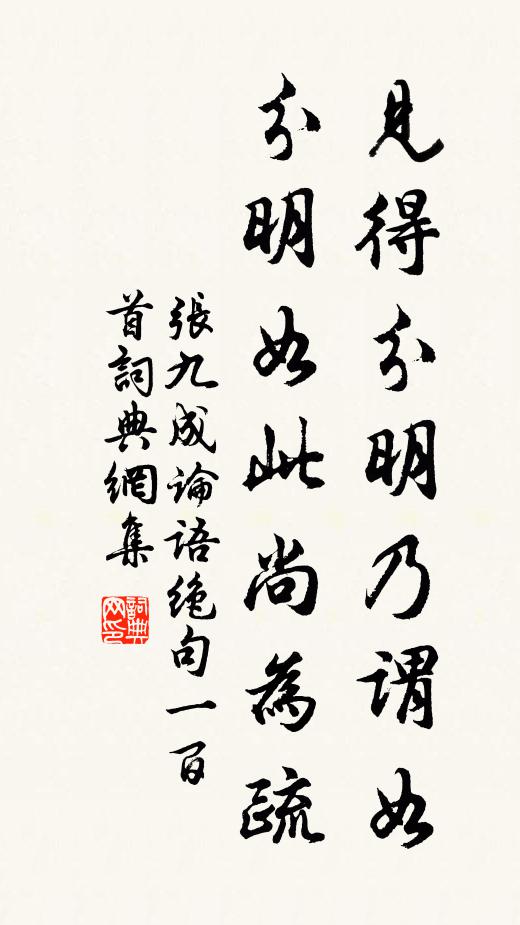 見得分明乃謂如
分明如此尚為疏
張九成論語絶句一百
首詞典網集
詞典
网印